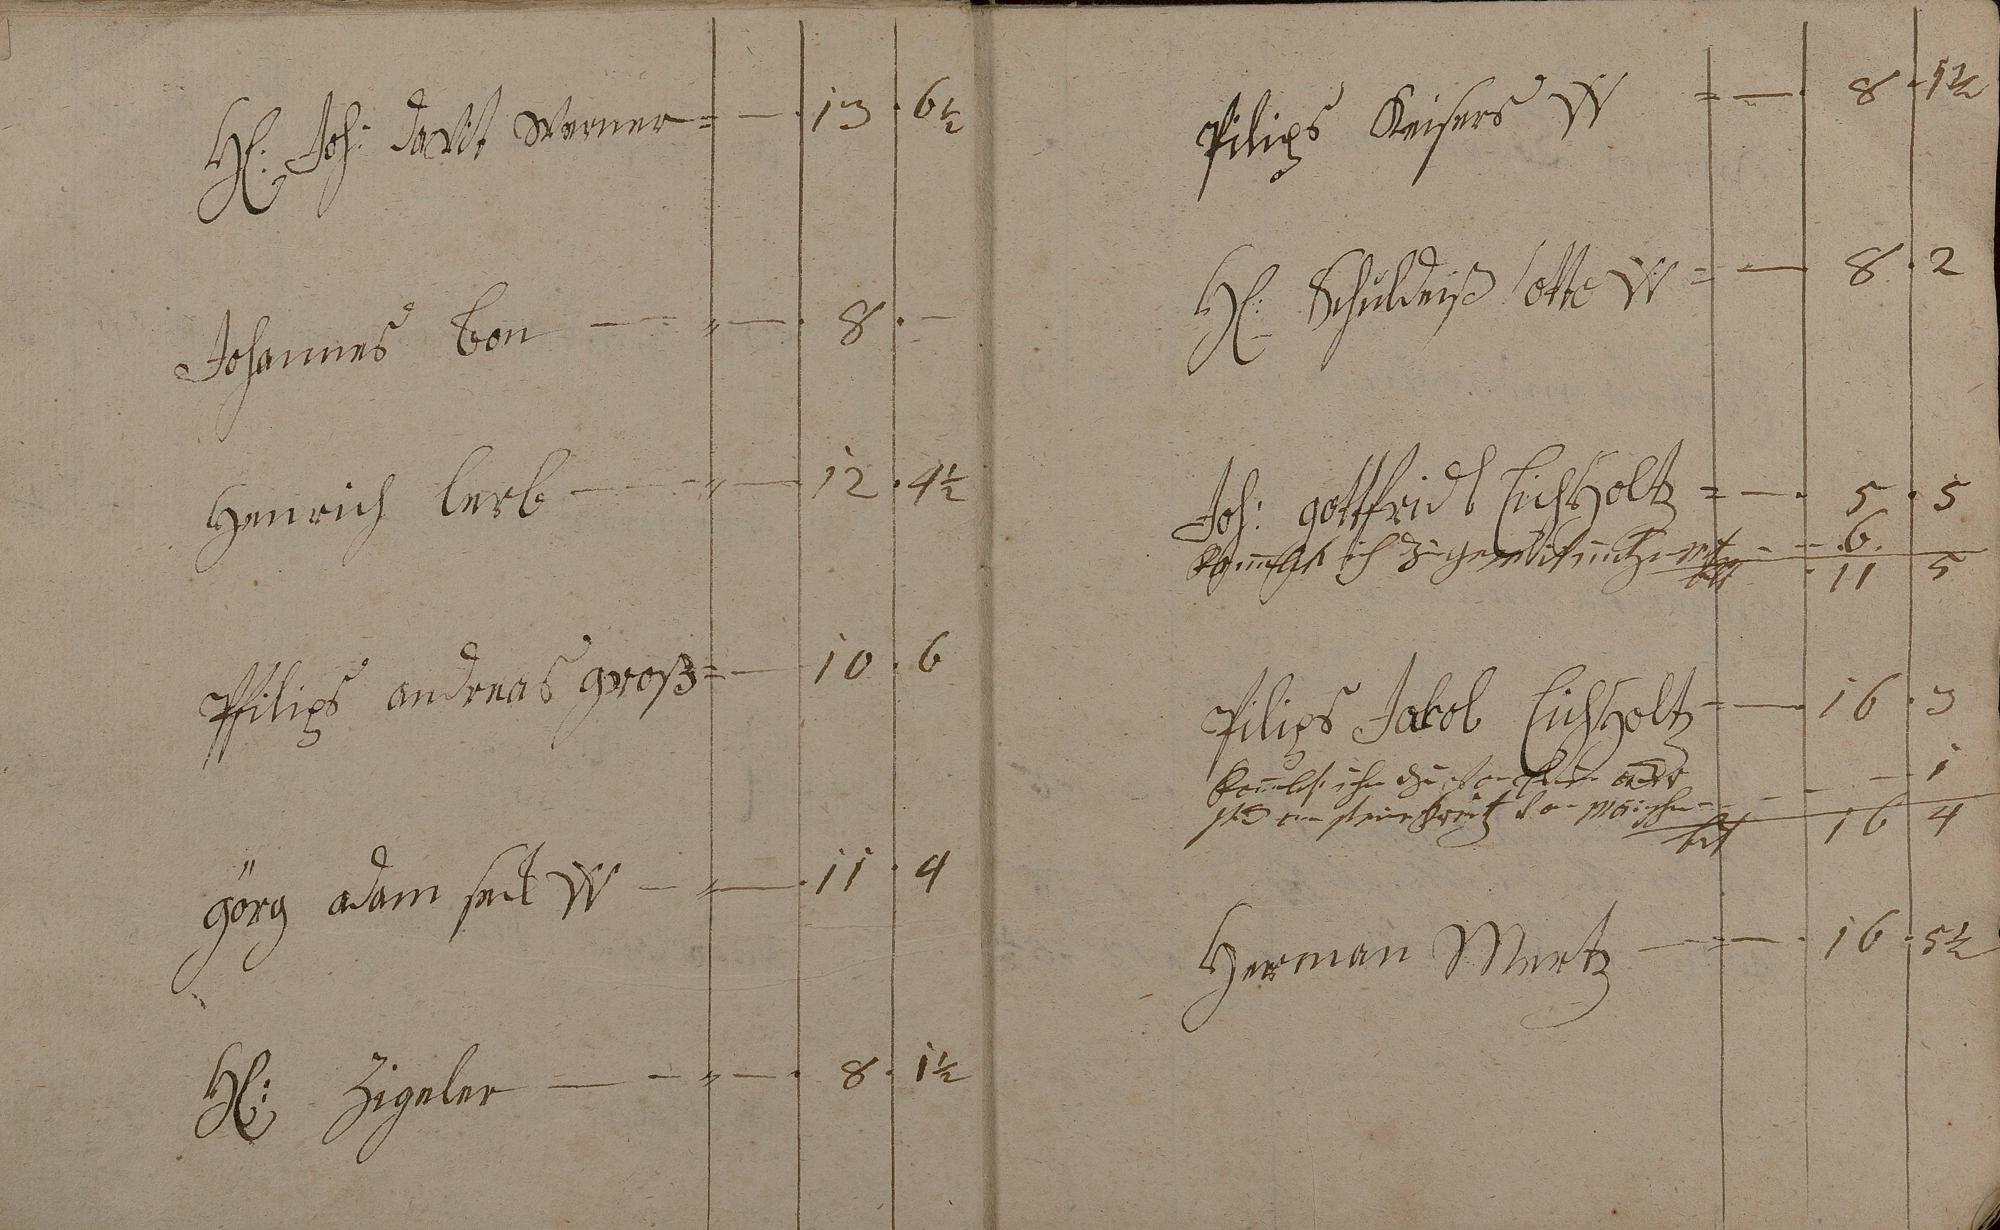 H: Joh: davit Werner = — 13 · 6½
Johannes bon — " — 8 · —
Henrich lerb — " — 12 · 4½
Philips andreas groß = — 10 · 6
görg adam W — " — 11 · 4
H: Zigeler — — " — 8 · 1½
Pilips Keisers W = — 8 · 1½
H: Schuldeiß otto W = — 8 · 2
Joh: gottfrid Eichholtz = — 5 · 5
6
11 5
Pilips Jakob Eichholtz — 16 · 3
— 1
16 4
Herman Mertz — — 16 · 5½